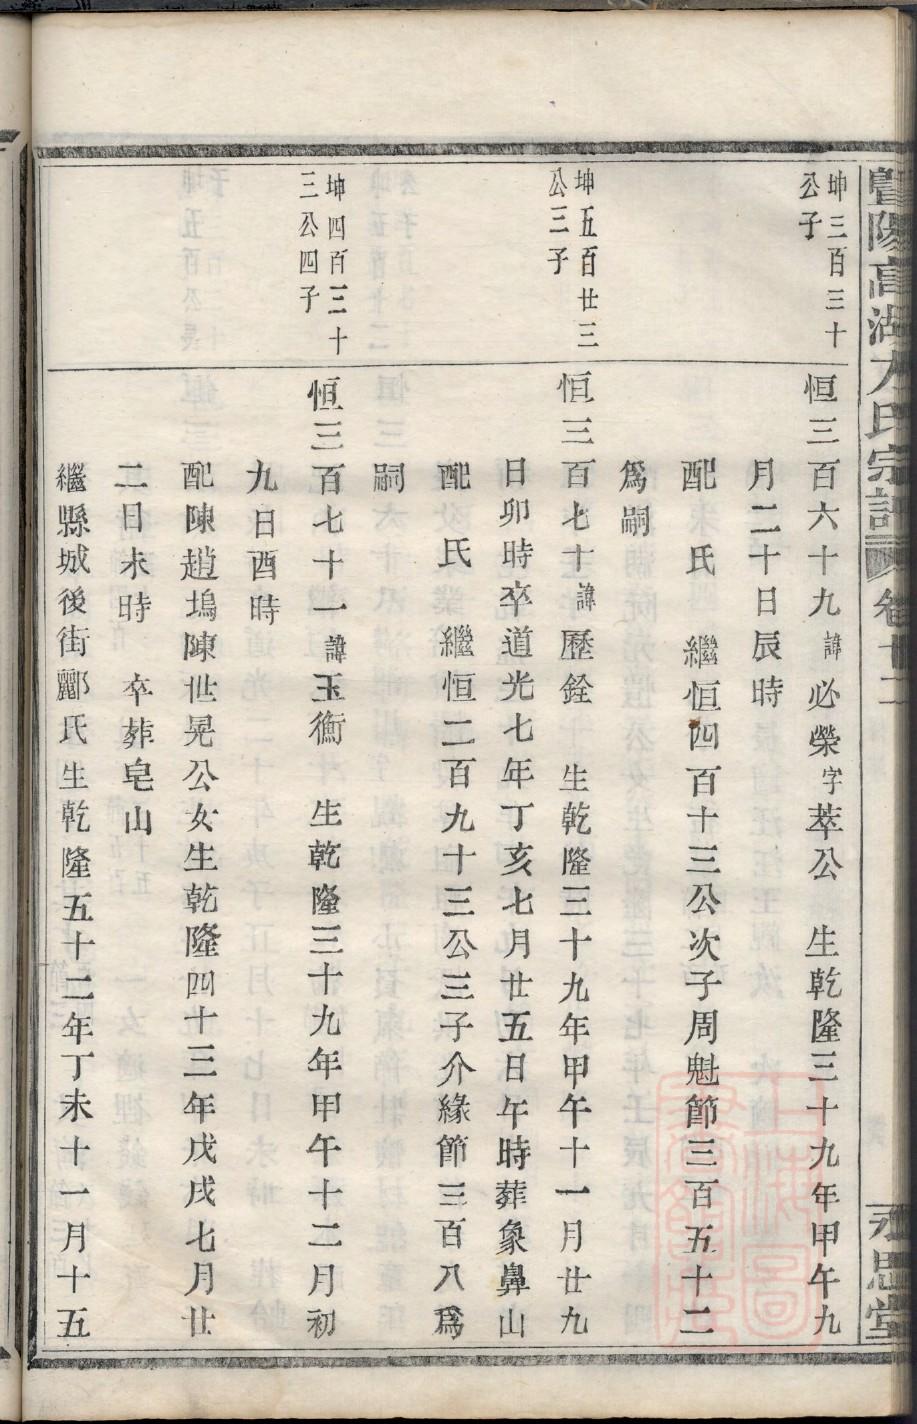 暨陽高湖方氏宗譜 卷十二 永思堂
坤三百三十
公子
恒三百六十九諱必榮字萃公 生乾隆三十九年甲午九
月二十日辰時
配 氏 繼恒四百十三公次子周魁節三百五十二
為嗣
坤五百廿三
公三子
恒三百七十諱歷銓 生乾隆三十九年甲午十一月廿九
日卯時卒道光七年丁亥七月廿五日午時葬象鼻山
配 氏 繼恒二百九十三公三子介緣節三百八為
嗣
坤四百三十
三公四子
恒三百七十一諱玉衡 生乾隆三十九年甲午十二月初
九日酉時
配陳趙塢陳世晃公女生乾隆四十三年戊戌七月廿
二日未時 卒葬皂山
繼縣城後街酈氏生乾隆五十二年丁未十一月十五